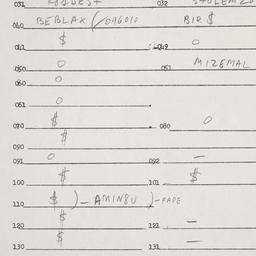 031 032
040 BEBLAX (/096010 BIR $
041 $ 049 0
050 0 051 MIZEMAL
060 0
061 0
070 $ 080 0
$
090
091 0 092 —
100 $ 101 $
110 $ ) - AMINGU ) - PAPE
$
120 121 —
130 $ 131 —